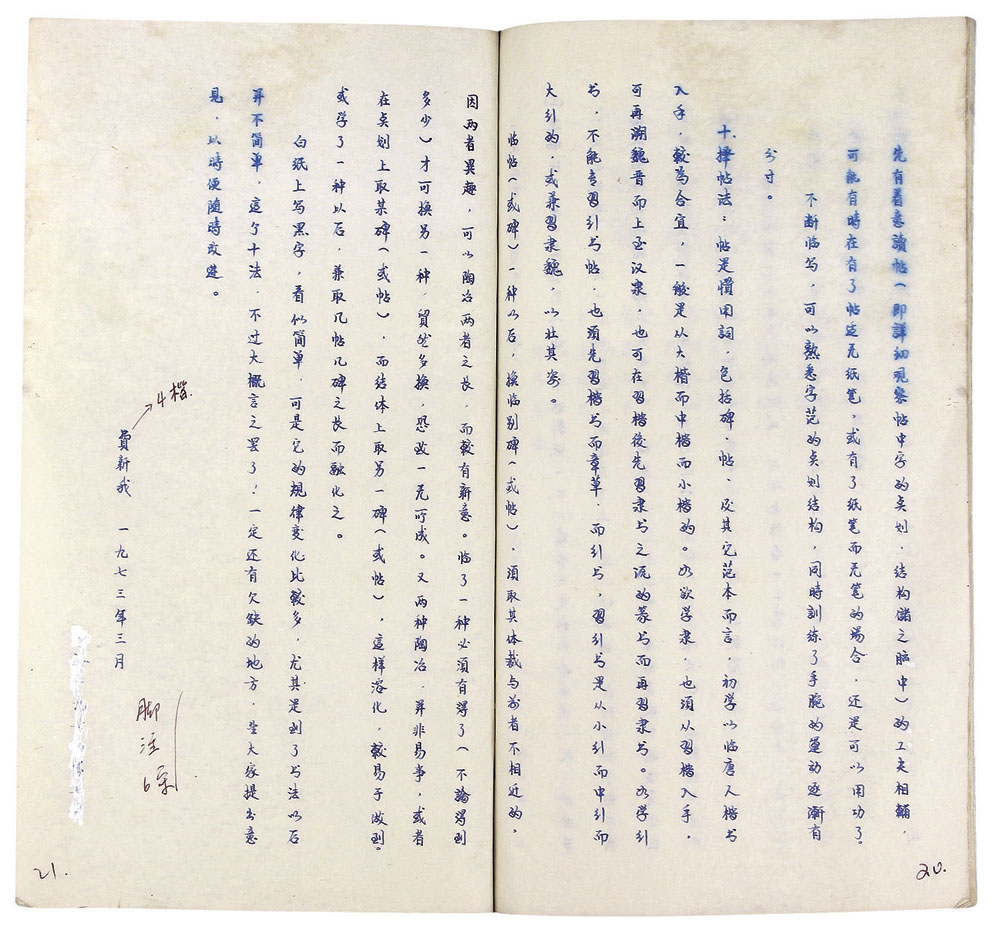 先有着意讀帖(即詳细观察帖中字的点划．结构儲之脑中)的工夫相輔．
可能有時在有了帖还无纸笔，或有了纸笔而无笔的場合，还是可以用功了．
不断临写，可以熟悉字范的点划结构，同時訓练了手腕的運动逐漸有
分寸。
十．擇帖法：帖是慣用詞，包括碑．帖．及其它范本而言．初学以临唐人楷书
入手．較為合宜，一般是从大楷而中楷而小楷的。如欲学隶．也須从习楷入手，
可再溯魏晋而上至汉隶．也可在習楷後先習隶书之流的篆书而再習隶书。如学行
书，不能专習行书帖．也須先習楷书而章草．而行书，習行书是从小行而中行而
大行的．或兼習隶魏．以壮其姿。
临帖(或碑)一种以后，換临别碑(或帖)．須取其体裁与前者不相近的，
因两者異趣，可以陶冶两者之长．而較有新意。临了一种必須有得了(不論得到
多少)才可換另一种．貿然多換，恐致一无所成。又两种陶冶．并非易事，或者
在点划上取某碑(或帖)．而结体上取另一碑(或帖)，這样溶化，較易于做到。
或学了一种以后，兼取几帖几碑之长而融化之。
白纸上写黑字，看似简单．可是它的規律变化比較多，尤其是到了书法以后
并不简单．這个十法．不过大概言之罢了！一定还有欠缺的地方．望大家提出意
見．以時便随時改進。
费新我 一九七三年三月
4楷．
脚注6宋
20．
21．